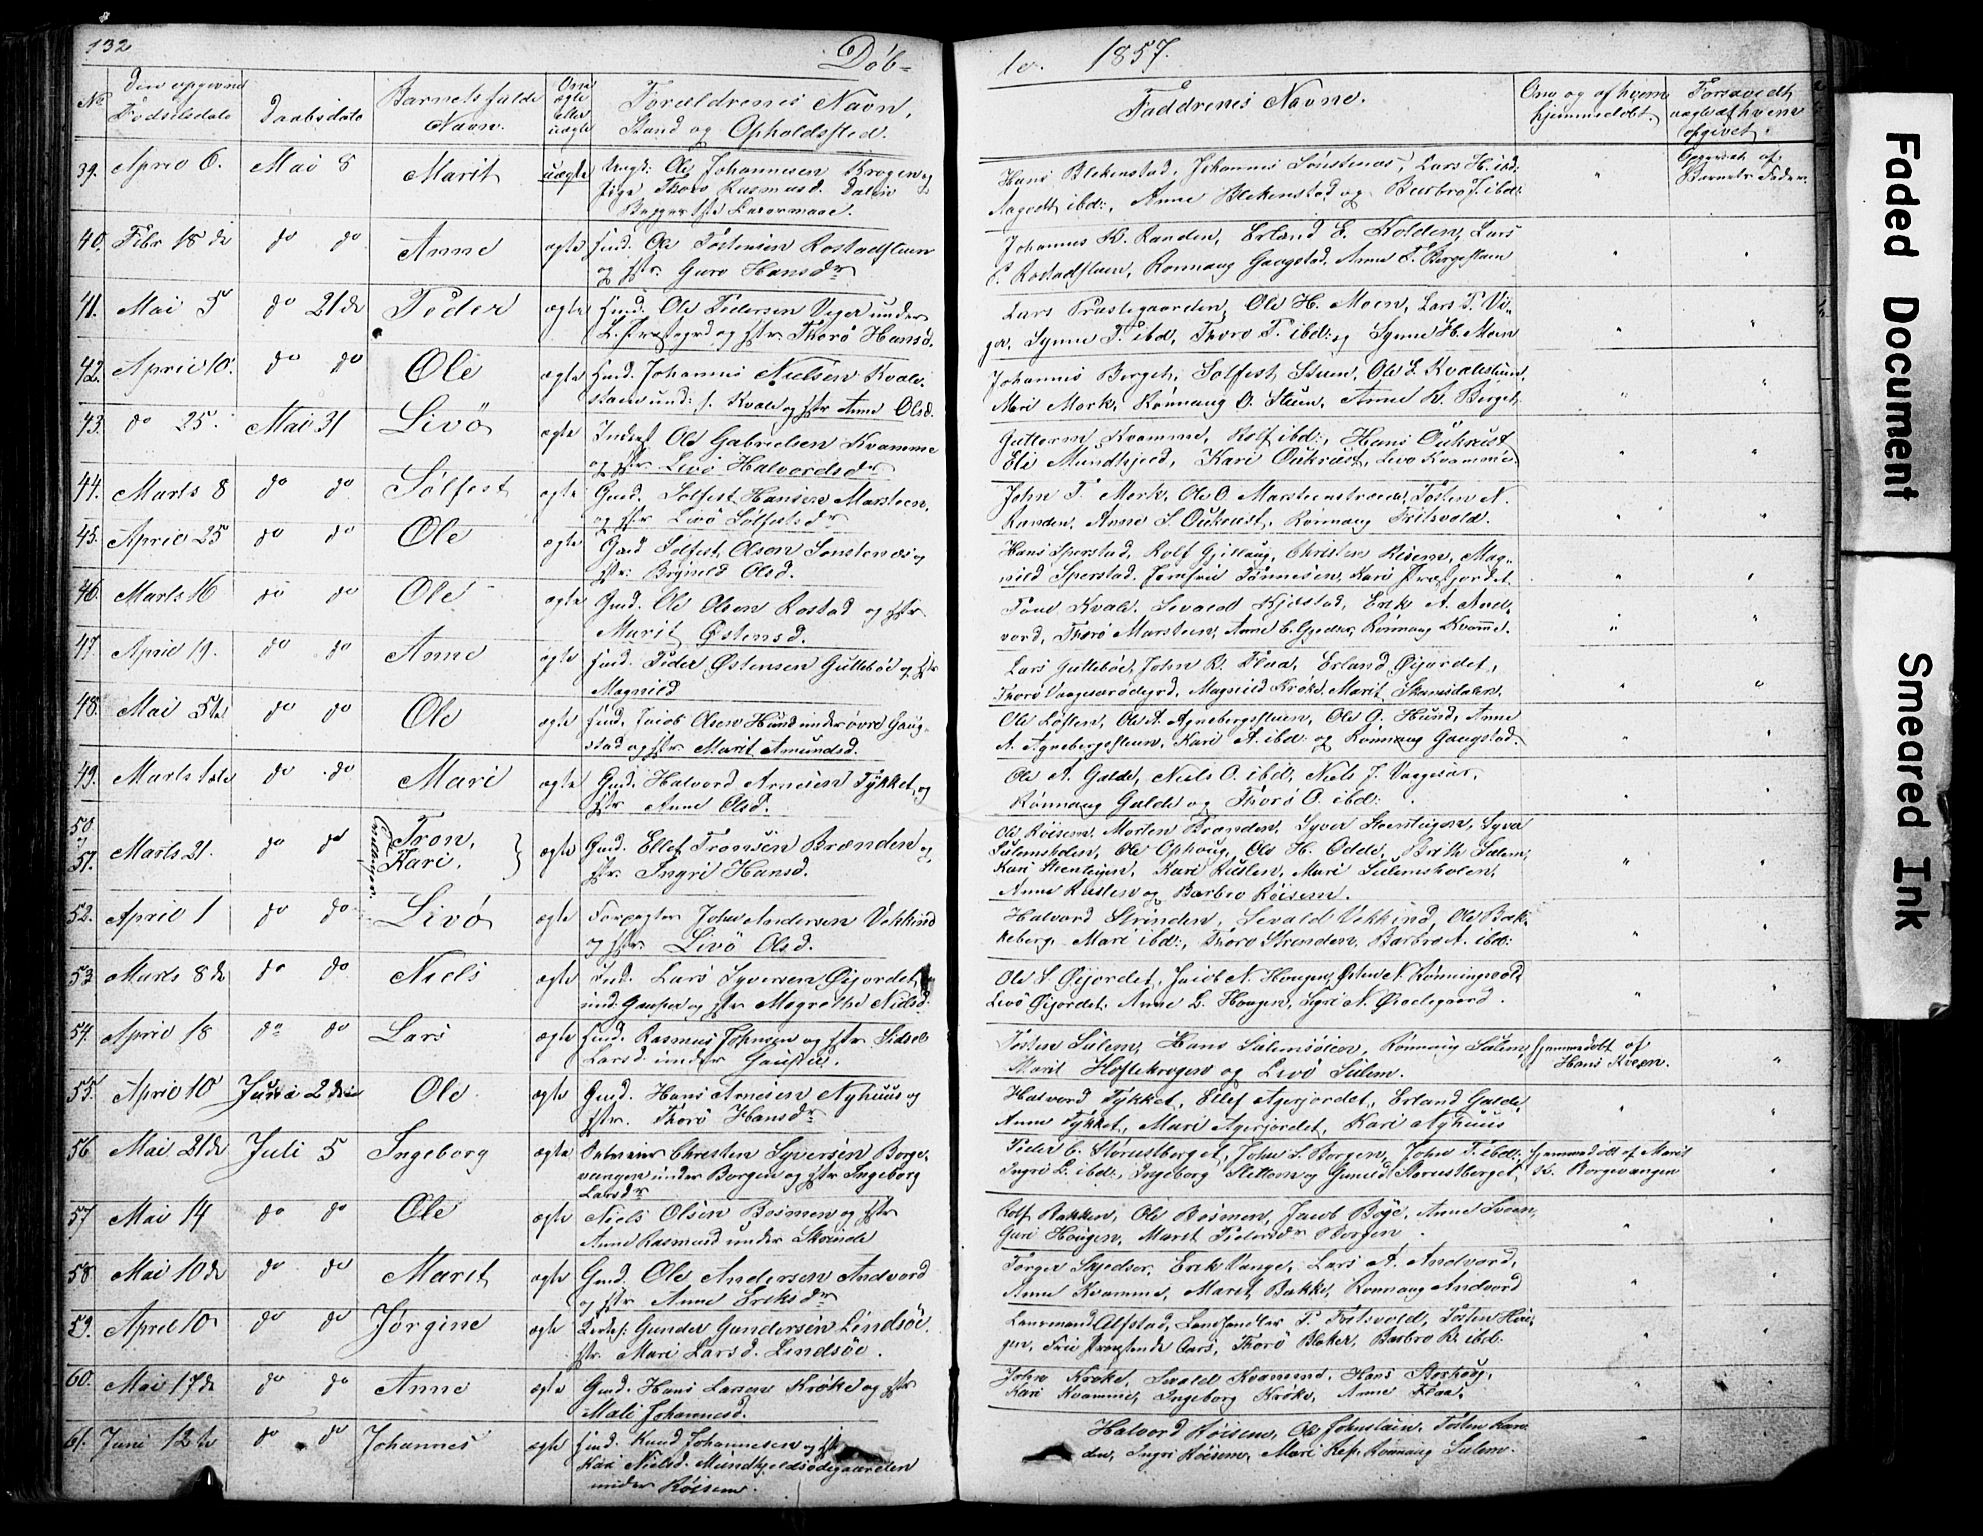 132
Døb-
te. 1857.
No
Den opgivne Fødselsdato
Daabsdato
Barnets fulde Navn.
Om ægte eller uægte
Forældrenes Navn, Stand og Opholdssted.
Faddrenes Navne.
Om og af hvem hjemmedøbt
Forsavidt uægte af hvem opgivet.
39. April 6. Mai 8 Marit uægte Ungk: Ole Johannesen Brogen og
pige Thoro Rasmusd.
Hans Blekenstad, Johannes Sønstenæs, Lars H. ibd:
Aagodt ibd:, Anne Blekenstad og Barbro T. ibd:
" Opgivet af Barnets Fader.
40. Febr 18de do do Anne ægte Huud. Ole Tostensen Rostadstuen
og Hstr. Guro Hansdr
Johannes K. Randen, Erland E. Kolden, Lars
E. Rostadstuen, Rønnaug Gaugstad, Anne T. Bergestuen
41. Mai 5 do 21de Peder ægte Huud. Ole Pedersen Viger under
L. Præstegrd og Hstr. Thorø Hansd.
Lars Præstegaarden, Ole H. Moen, Lars P. Vi-
ger, Synne P. ibd, Thoro P. ibd: og Synne H. Moen
42. April 10. do do Ole ægte Huud. Johannes Nielsen Kvale-
stuen und: f. Kvale og Hstr Anne Olsd.
Johannes Berget, Solfest Stuen, Ole S. Kvalestuen,
Mari Mork, Rønnaug O. Stuen, Anne K. Berget.
43. do 25. Mai 31 Livø ægte Inderst Ole Gabrielsen Kvamme
og Hstr Livø Halvordsdr
Guttorm Kvamme, Rolf ibd:, Hans Oukrust
Eli Mundhjeld, Kari Oukrust, Livø Kvamme.
44. Marts 8 do do Sølfest ægte Gmd. Solfest Hansen Marsteen,
og Hstr Livø Sølfestsdr
John T. Mork, Ole O. Marsteenstræde, Tosten N.
Randen, Anne S. Oukrust, Rønnaug Fritsvold.
45. April 25 do do Ole ægte Gmd Solfest Olsen Sønstenæs og
Hstr: Brynild Olsd.
Hans Sperstad, Rolf Gjillaug, Christen Risem, Mag-
nild Sperstad, Jomfru Tønnesen, Kari Præstjordet.
46. Marts 16 do do Ole ægte Gmd. Ole Olsen Rostad og Hstr
Marit Østensd.
Poul Kvale, Sevald Kjæstad, Erik A. And-
vord, Thorø Marsteen, Anne E. Gjeder, Rønnaug Kvamme.
47. April 19. do do Anne ægte Huud. Peder Østensen Guttebøe og Hstr
Magnild
Lars Guttebøe, John R. Flaa, Erland Øijordet,
Thorø, Magnild Krøke, Marit Skamsdalen.
48. Mai 5te do do Ole ægte Huud. Jacob Olsen Hund under øvre Gaug-
stad og Hstr. Marit Amundsd.
Ole Løften, Ole A. Agnebergstuen, Ole O. Hund, Anne
A. Agnebergstuen, Kari A. ibd: og Rønnaug Gaugstad.
49. Marts 1ste do do Mari ægte Gmd. Halvord Arnesen Tykket og
Hstr Anne Olsd.
Ole A. Galde, Niels O. ibd, Niels J. Vaggesar,
Rønnaug Galde og Thorø O. ibd:
50. og 51. Marts 21. do do Tvillinger Tron, Kari. ægte Gmd. Ellef Tronsen Brænden og
Hstr. Ingri Hansd.
Ole Røisem, Morten Brænden, Syver Steenteigen, Syver
Sulemsholen, Ole Ophoug, Ole H. Odde, Brith Sulem,
Kari Steenteigen, Kari Rusten, Mari Sulemsholen,
Anne Rusten og Barbro Røisem.
52. April 1 do do Livø ægte Forpagter John Andersen Vekkind
og Hstr Livø Olsd.
Halvord Strinden, Sevald Vekkind, Ole Bak-
keberg, Mari ibd:, Thoro Strenden, Barbro A. ibd:
53 Marts 8de do do Niels ægte Ind. Lars Syversen Øijordet,
und. Gaupar og Hstr Magrethe Nielsd:
Ole S. Øijordet, Jacob N. Hougen, Østen N. Rønningvold
Livø Øijordet, Anne L. Hougen, Sigri N. Ødegaard.
54. April 18 do do Lars ægte Huud. Rasmus Johnsen og Hstr Sidsel
Larsd. under Gaustad.
Tosten Sulem, Hans Sulemsøien, Rønnaug Sulem,
Marit Hoftekrogen og Livø Sulem.
hjemmedøbt af Hans Kveen.
55. April 10 Juni 2den Ole ægte Gmd. Hans Arnesen Nyhuus og
Hstr. Thorø Hansdr
Halvord Tykket, Ellef Agerjordet, Erland Galde,
Anne Tykket, Mari Agerjordet, Kari Nyhuus
56 Mai 21de Juli 5 Ingeborg ægte Christen Syversen Borge-
vangen under Borgen og Hstr Ingeborg
Larsdr
Peder C. Storustberget, John S. Borgen, John T. ibd:,
Ingri L. ibd:, Ingeborg Slettem og Gunild Storustberget,
hjemmedøbt af Marit Borgevangen
57 Mai 14 do do Ole ægte Niels Olsen Bosmen og Hstr
Anne Rasmusd under Skrinde
Rolf Bakken, Ole Bosmen, Jacob Bøye, Anne Sveen,
Guri Hougen, Marit Pedersdr Borgen.
58 Mai 10de do do Marit ægte Gmd. Ole Andersen Andvord
og Hstr. Anne Eriksdr
Torger Skjedsør, Erik Vange, Lars A. Andvord,
Anne Kvamme, Marit Bakke, Rønnaug Andvord
59. April 10 do do Jørgine ægte Kirkes: Gunder Gundersen Lindsøe.
Hstr. Mari Larsd. Lindsøe.
Leensmand Alfstad, Landhandler P. Fritsvold, Tosten Hou-
gen, Frue Provstinde Aars, Thorø Bleker, Barbro R. ibd.
60. Mai 17de do do Anne ægte Gmd. Hans Larsen Krøke og Hstr
Mali Johannesd.
John Krøke, Sevald Kvamme, Hans Storhoug,
Kari Kvamme, Ingeborg Krøke, Anne Flaa.
61. Juni 12te do do Johannes ægte Huud. Knud Johannesen og Hstr
Kari Nielsd. Mundhjeldsødegaarden
under Røisem.
Halvord Røisem, Ole Johnstuen, Tosten Ran-
den, Ingri Røisem, Mari Rep. Rønnaug Sulem.
Faded Document
Smeared Ink